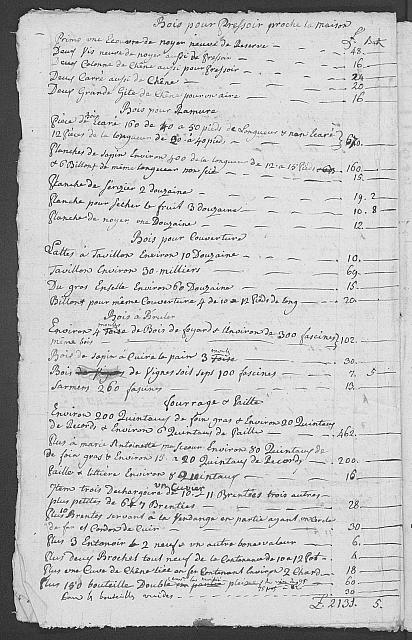 Bois pour Pressoir proche la maison
£ Batz
Primo une Ecouvre de noyer neuve de Reserve 48.
Deux Vis neuve de noyer aussi de Pressoir
Deux Colonne de Chêne aussi pour Pressoir 16
Deux Carré aussi de Chêne 24
Deux Grande Gite de Chêne pour un aire 20
16
Bois pour Ramure
Pièce de bois Ecaré 160 de 40 a 50 pieds de Longueur & non Ecaré
12 Pièces de la Longueur de 30 a 40 pieds
Planches de sapin Environ 400 de la longueur de 12 a 15 Pieds 160.
& 6 Billont de même longueur non sié 15.
Planche de 2 douzaine 19. 2
Planche pour sécher le fruit 3 douzaine 10. 8
Planche de noyer une Douzaine 12.
Bois pour Couverture
Lattes à Tavillon Environ 10 Douzaine 10.
Tavillon Environ 30 milliers 69.
Du gros Enselle Environ 60 Douzaine 15.
Billont pour même Couverture 4 de 10 a 12 Pieds de long 20.
Bois à Bruler
Environ 4 moules de Bois de foyard & Environ de 300 fascines 102.
même bois
Bois de sapin à Cuire le pain 3 moules 30.
Bois de Vignes soit seps 100 fascines 7. 5
Sarmens 260 fascines 13.
Fourrage & Paille
Environ 200 Quintaux de foin gras & Environ 20 Quintaux
de Records & Environ 6 Quintaux de Paille 462.
Plus à marie Antoinette ma soeur Environ 80 Quintaux
de foin gras & Environ 15 a 20 Quintaux de Records 200.
Paille à littière Environ 8 Quintaux 16
un Cuvier
Item trois Dechargeoire de 10 a 11 Brentées trois autres
plus petites de 6 & 7 Brentées 28.
Plus Brentes servant à la Vendange en partie ayant un Cercle
de fer et Cordon de Cuir 30.
Plus 3 Entonoir & 2 neuf un autre bonne valeur 6.
Plus deux Brochet tout neuf de la Contenance de 10 a 12 Pot 4.
Plus une Cuve de Chêne liée en fer Contenant Environ 2 Chard 18.
Plus 150 bouteille Double 60
bouteilles vuides 30
£ 2131. 5.